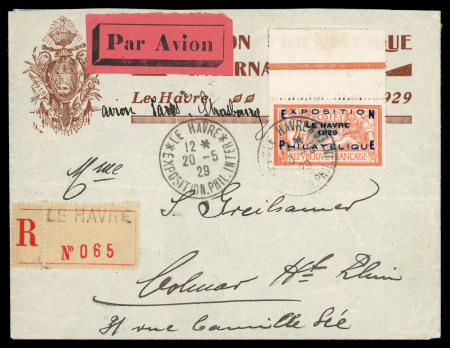 Par Avion
ION
QUE
ERNA
Le Havre
1929
avion Paris, Strasbourg
LE HAVRE
12 *
20 - 5
29
EXPOSITION.PHIL.INTER
EXPOSITION
LE HAVRE
1929
PHILATELIQUE
REPUBLIQUE FRANÇAISE
Mme
S. Greilsamer
LE HAVRE
R
N° 065
Colmar Ht Rhin
31 rue Camille Sée